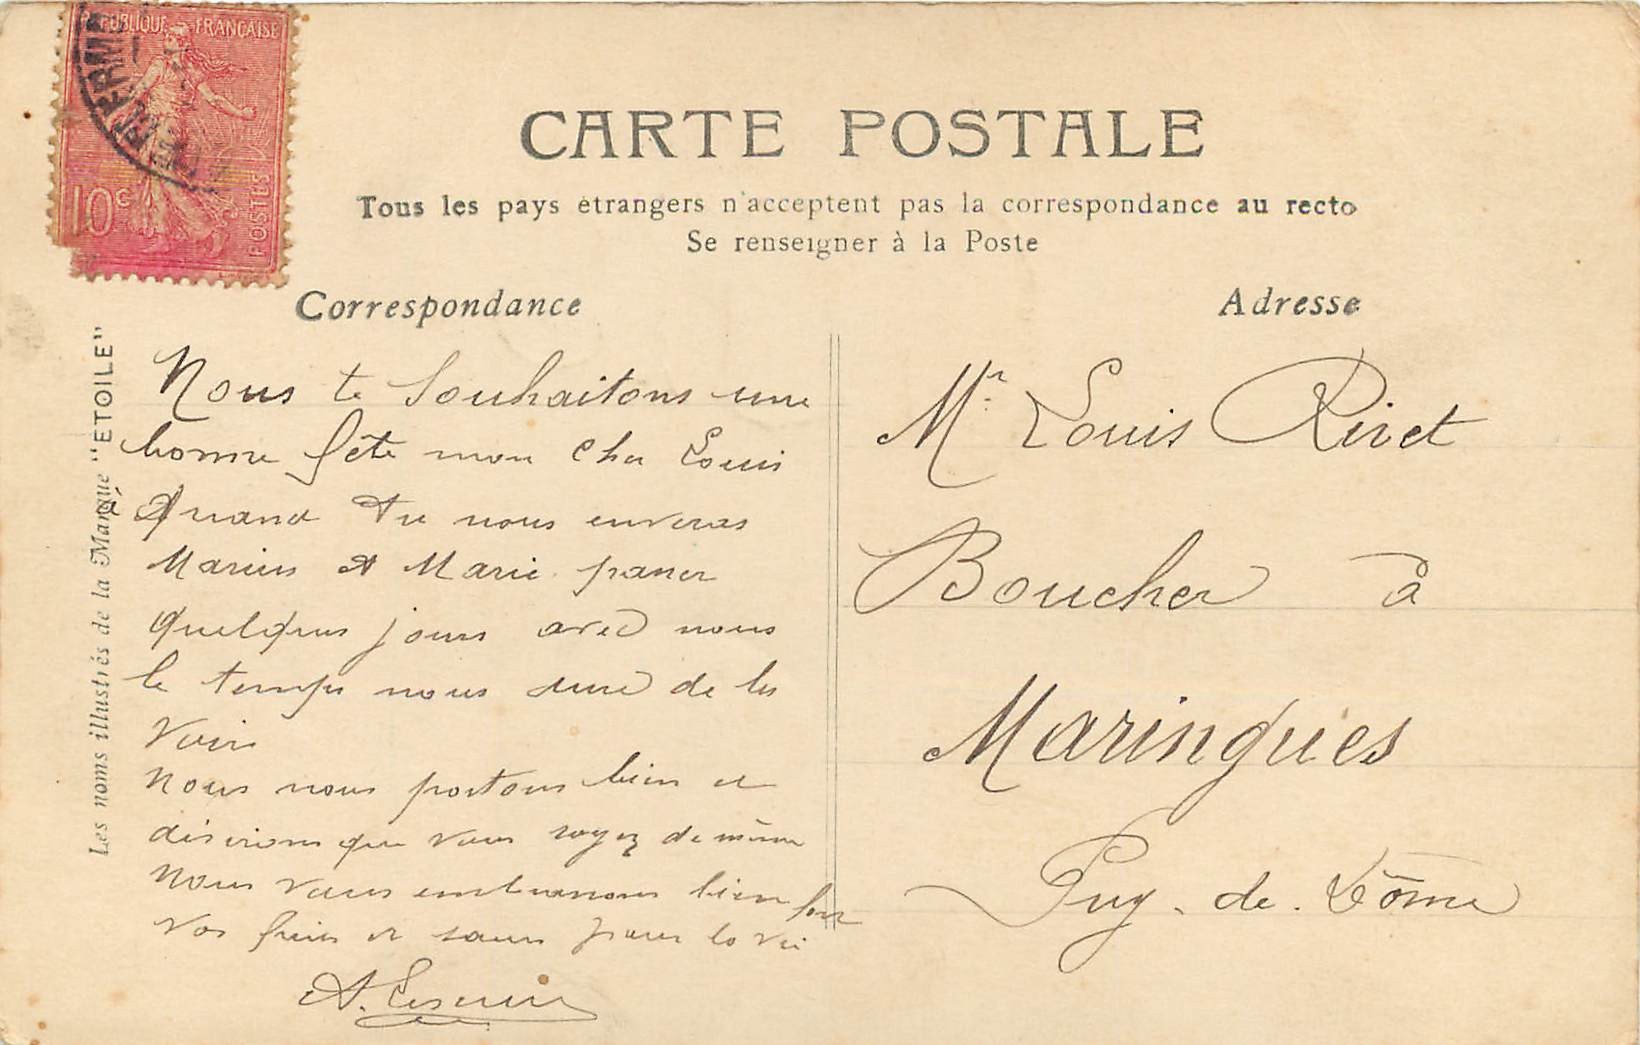 RÉPUBLIQUE FRANÇAISE
10c
POSTES
CARTE POSTALE
Tous les pays étrangers n'acceptent pas la correspondance au recto
Se renseigner à la Poste
Correspondance
Nous te souhaitons une
bonne fête mon cher Louis
Quand tu nous enveras
Marius et Marie passer
quelques jours avec nous
le temps nous dure de les
voir
Nous nous portons bien et
désirons que vous soyez de même
Nous vous embrassons bien fort
vos frère et soeur pour la vie
Adresse
Mr Louis Rivet
Boucher à
Maringues
Puy-de-Dôme
Les noms illustrés de la Marque "ETOILE"